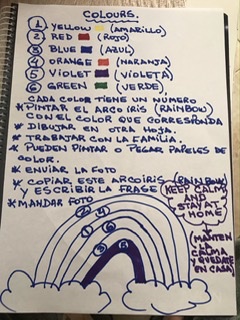 COLOURS.
① YELLOW (AMARILLO)
② RED (ROJO)
③ BLUE (AZUL)
④ ORANGE (NARANJA)
⑤ VIOLET (VIOLETA)
⑥ GREEN (VERDE)
CADA COLOR TIENE UN NÚMERO
* PINTAR EL ARCO IRIS (RAINBOW)
CON EL COLOR QUE CORRESPONDA
* DIBUJAR EN OTRA HOJA.
* TRABAJAR CON LA FAMILIA.
* PUEDEN PINTAR O PEGAR PAPELES DE
COLOR.
* ENVIAR LA FOTO
Y COPIAR ESTE ARCOIRIS (RAINBOW)
Y ESCRIBIR LA FRASE
* MANDAR FOTO
KEEP CALM
AND
STAY AT
HOME
MANTEN
LA
CALMA
Y QUEDATE
EN CASA
② ④
① ⑥
③ ⑤